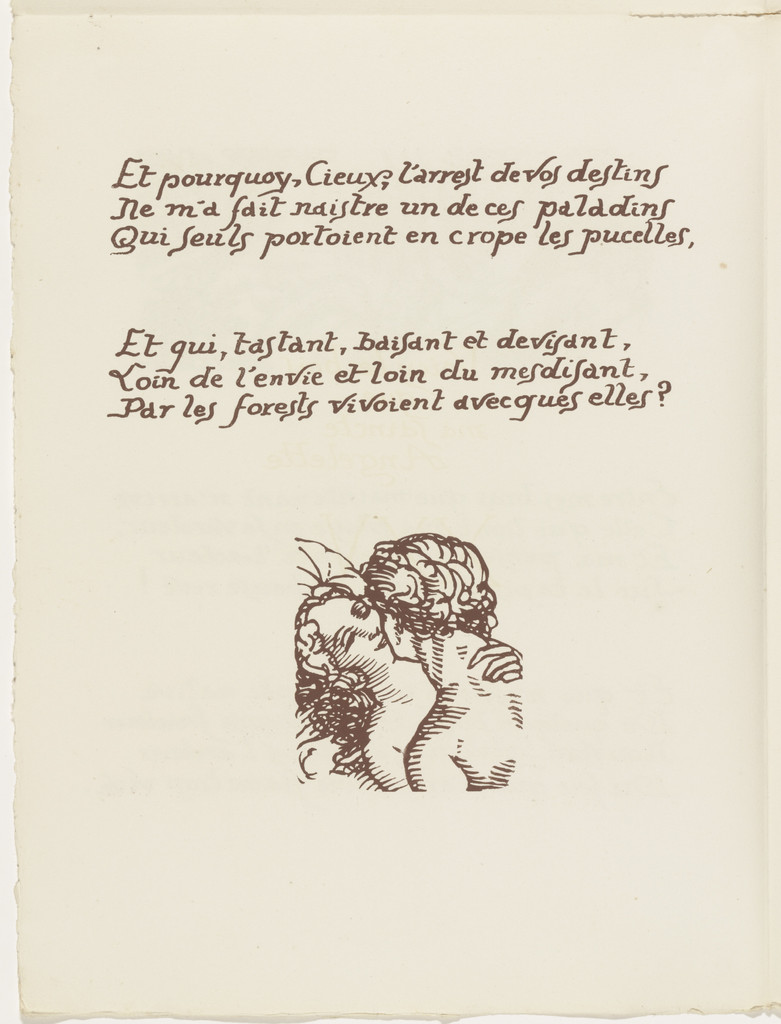 Et pourquoy, Cieux, l'arrest de vos destins
Ne m'a fait naistre un de ces paladins
Qui seuls portoient en crope les pucelles,
Et qui, tastant, baisant et devisant,
Loin de l'envie et loin du mesdisant,
Par les forests vivoient avecques elles?